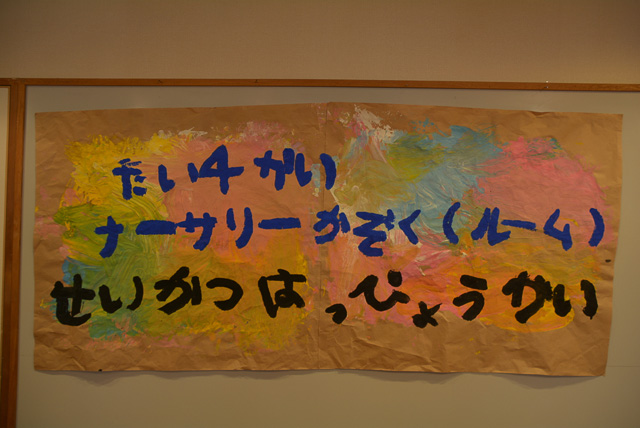 だい4かい
ナーサリーかぞく(ルーム)
せいかつはっぴょうかい